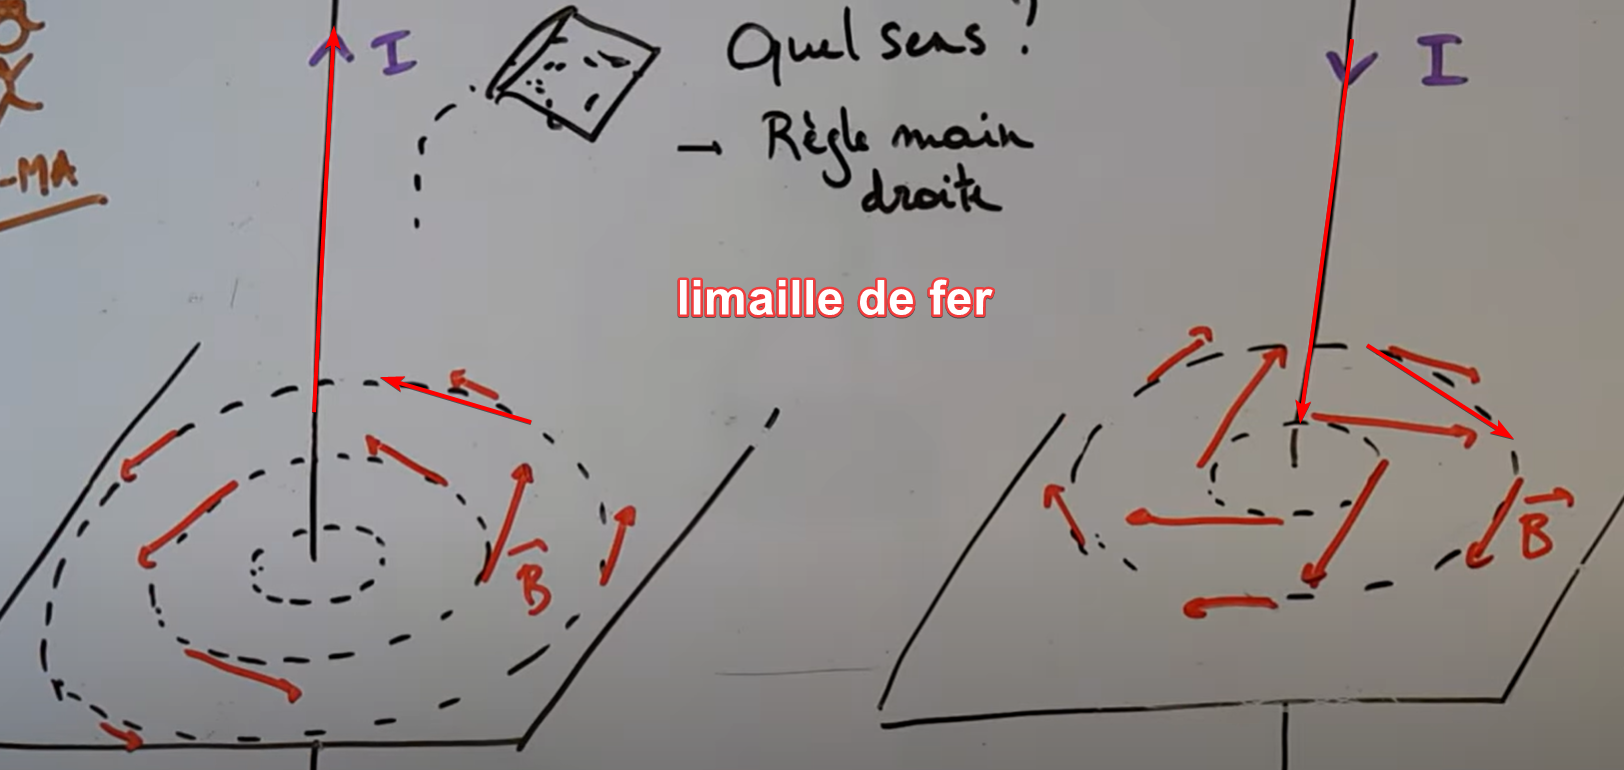 I
Quel sens ?
I
→ Règle main
droite
-MA
limaille de fer
B
B